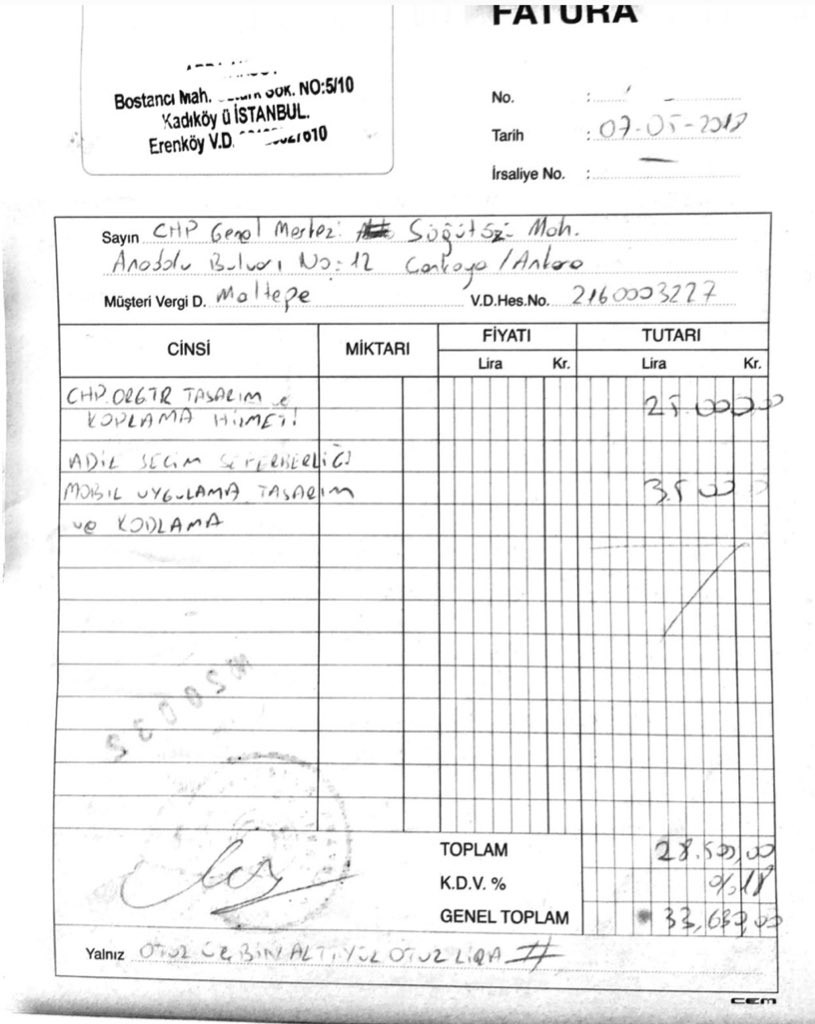 FATURA
Bostancı Mah. Sok. NO:5/10
Kadıköy ü İSTANBUL.
Erenköy V.D.
No. :
Tarih : 07-05-2018
İrsaliye No. :
Sayın CHP Genel Merkezi Söğütözü Mah.
Anadolu Bulvarı No:12 Çankaya/Ankara
Müşteri Vergi D. Maltepe V.D.Hes.No. 2160003227
CİNSİ MİKTARI FİYATI TUTARI
Lira Kr. Lira Kr.
CHP.ORG.TR TASARIM ve 25.000,00
KODLAMA HİZMETİ
ADİL SEÇİM SEFERBERLİĞİ
MOBİL UYGULAMA TASARIM 3.500
ve KODLAMA
TOPLAM 28.500,00
K.D.V. % %18
GENEL TOPLAM 33,630,00
Yalnız OTUZ ÜÇ BİN ALTIYÜZ OTUZ LİRA #
CEM